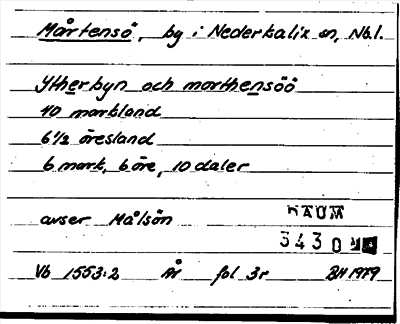 Mårtensö, by i Nederkalix sn, Nb.l.
Ytherbyn och morthensöö
40 markland
6½ öresland
6 mark, 6 öre, 10 daler
avser Målsön
DAUM
3430
Vb 1553:2 År fol 3r BH 1979